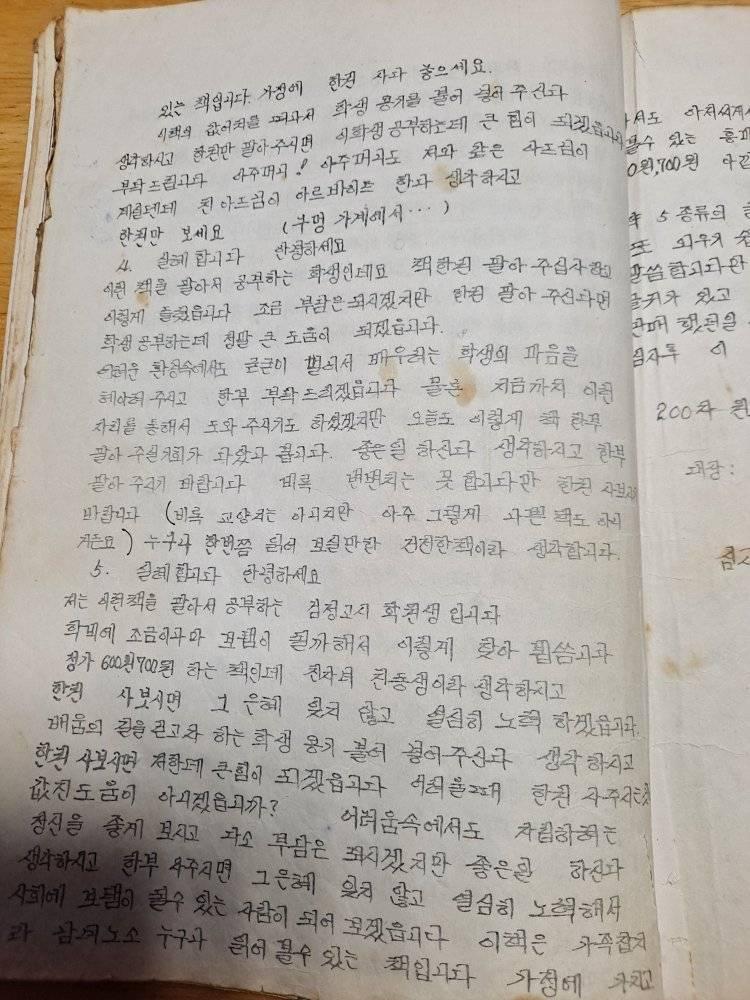 있는 책입니다. 가정에 한권 사다 놓으세요.
이책의 값어치를 떠나서 학생 용기를 불어 넣어 주신다
생각하시고 한권만 팔아주시면 이학생 공부하는데 큰 힘이 되겠읍니다
부탁드립니다 아주머니! 아주머니도 저와 같은 아드님이
계실텐데 친아드님이 아르바이트 한다 생각하시고
한권만 보세요 (구멍 가게에서…)
4. 실례합니다 안녕하세요
이런 책을 팔아서 공부하는 학생인데요 책한권 팔아 주십사하고
이렇게 들렸읍니다 조금 부담은 되시겠지만 한권 팔아 주신다면
학생 공부하는데 정말 큰 도움이 되겠읍니다.
어려운 환경속에서도 굳굳이 벌어서 배우려는 학생의 마음을
헤아려 주시고 한부 부탁드리겠읍니다 물론 지금까지 이런
자리를 통해서 도와 주시기도 하셨겠지만 오늘도 이렇게 책 한부
팔아 주실기회가 나왔다 봅니다. 좋은일 하신다 생각하시고 한부
팔아 주시기 바랍니다 비록 변변치는 못 합니다만 한권 사보시기
바랍니다 (비록 교양지는 아니지만 아주 그렇게 나쁜 책도 아니
거든요) 누구나 한번쯤 읽어 보실만한 건전한책이라 생각합니다.
5. 실례합니다 안녕하세요
저는 이런책을 팔아서 공부하는 검정고시 학원생 입니다
학비에 조금이나마 보탬이 될까해서 이렇게 찾아 뵙씀니다
정가 600원700원 하는 책인데 친자녀 친동생이라 생각하시고
한권 사보시면 그 은혜 잊지 않고 열심히 노력 하겠읍니다.
배움의 길을 걷고자 하는 학생 용기 불어 넣어주신다 생각하시고
한권 사보시면 저한테 큰힘이 되겠읍니다 어려울때 한권 사주시는것
값진도움이 아니겠읍니까? 어려움속에서도 자립하려는
정신을 좋게 보시고 다소 부담은 되시겠지만 좋은일 하신다
생각하시고 한부 사주시면 그은혜 잊지 않고 열심히 노력해서
사회에 보탬이 될수 있는 사람이 되어 보겠읍니다 이책은 가족잡지
라 남녀노소 누구나 읽어 볼수 있는 책입니다 가정에 가지고
볼수 있는
0원,700원
5 종류의
말씀합니다만
있고
200자 원